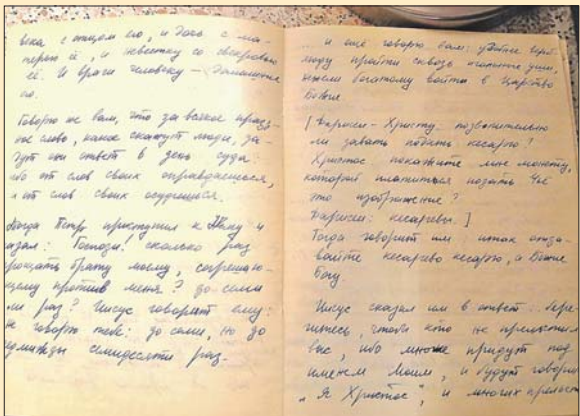 века с отцем его, и дочь с ма-
терью её, и невестку со свекровью
её. И враги человеку — домашние
его.
Говорю же вам, что за всякое празд-
ное слово, какое скажут люди, да-
дут они ответ в день суда:
ибо от слов своих оправдаешься,
и от слов своих осудишься.
Тогда Петр приступил к Нему и
сказал: Господи! сколько раз
прощать брату моему, согрешаю-
щему против меня? до семи
ли раз? Иисус говорит ему:
не говорю тебе: до семи, но до
седмижды семидесяти раз.
... и ещё говорю вам: удобнее верб-
люду пройти сквозь игольные уши,
нежели богатому войти в Царство
Божие
[Фарисеи - Христу: позволительно
ли давать подать кесарю?
Христос: покажите мне монету,
которой платиться подать. Чьё
это изображение?
Фарисеи: кесаревы.]
Тогда говорит им: итак отда-
вайте кесарево кесарю, а Божие
Богу.
Иисус сказал им в ответ: бере-
гитесь, чтобы кто не прельстил
вас, ибо многие придут под
именем Моим, и будут говорить
"Я Христос", и многих прельст